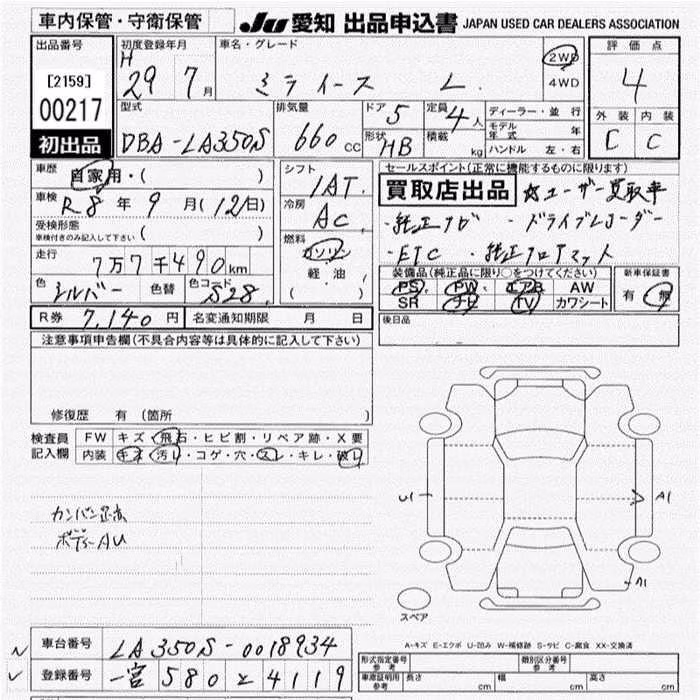 車内保管・守衛保管
JU 愛知 出品申込書 JAPAN USED CAR DEALERS ASSOCIATION
出品番号
[2159]
00217
初出品
初度登録年月
H
29 7月
車名・グレード
ミライース L
2WD
4WD
評価点
4
外装 内装
C C
型式
DBA-LA350S
排気量
660 CC
ドア 5
定員 4人
形状 HB
積載 kg
ディーラー・並行
モデル年式 年
ハンドル 左・右
車歴
自家用・( )
車検
R8年 9月(12日)
受検形態
車検付きのみ記入して下さい ( )
走行
7万7千490km
色 シルバー 色替 色コード S28
シフト
IAT
冷房
AC
燃料
ガソリン
軽油
( )
セールスポイント(正常に機能するものに限ります)
買取店出品 ユーザー買取車
・純正ナビ ・ドライブレコーダー
・ETC ・純正フロアマット
装備品(純正品に限り○をつけてください)
PS PW エアB AW
SR ナビ TV カワシート
新車保証書
有・無
R券 7,140円 名変通知期限 月 日
後日品
注意事項申告欄(不具合内容等は具体的に記入して下さい)
修復歴 有 (箇所 )
検査員記入欄
FW キズ・飛石・ヒビ割・リペア跡・X要
内装 キズ・汚レ・コゲ・穴・スレ・キレ・破レ
カンバン
ボデーAU
U1
A1
A1
スペア
A-キズ E-エクボ U-凹み W-補修跡 S-サビ C-腐食 XX-交換済
車台番号 LA350S-0018934
登録番号 一宮 580 と 4119
形式指定番号 参考
類別区分番号 参考
車庫証明用 参考 長さ cm 幅 cm 高さ cm